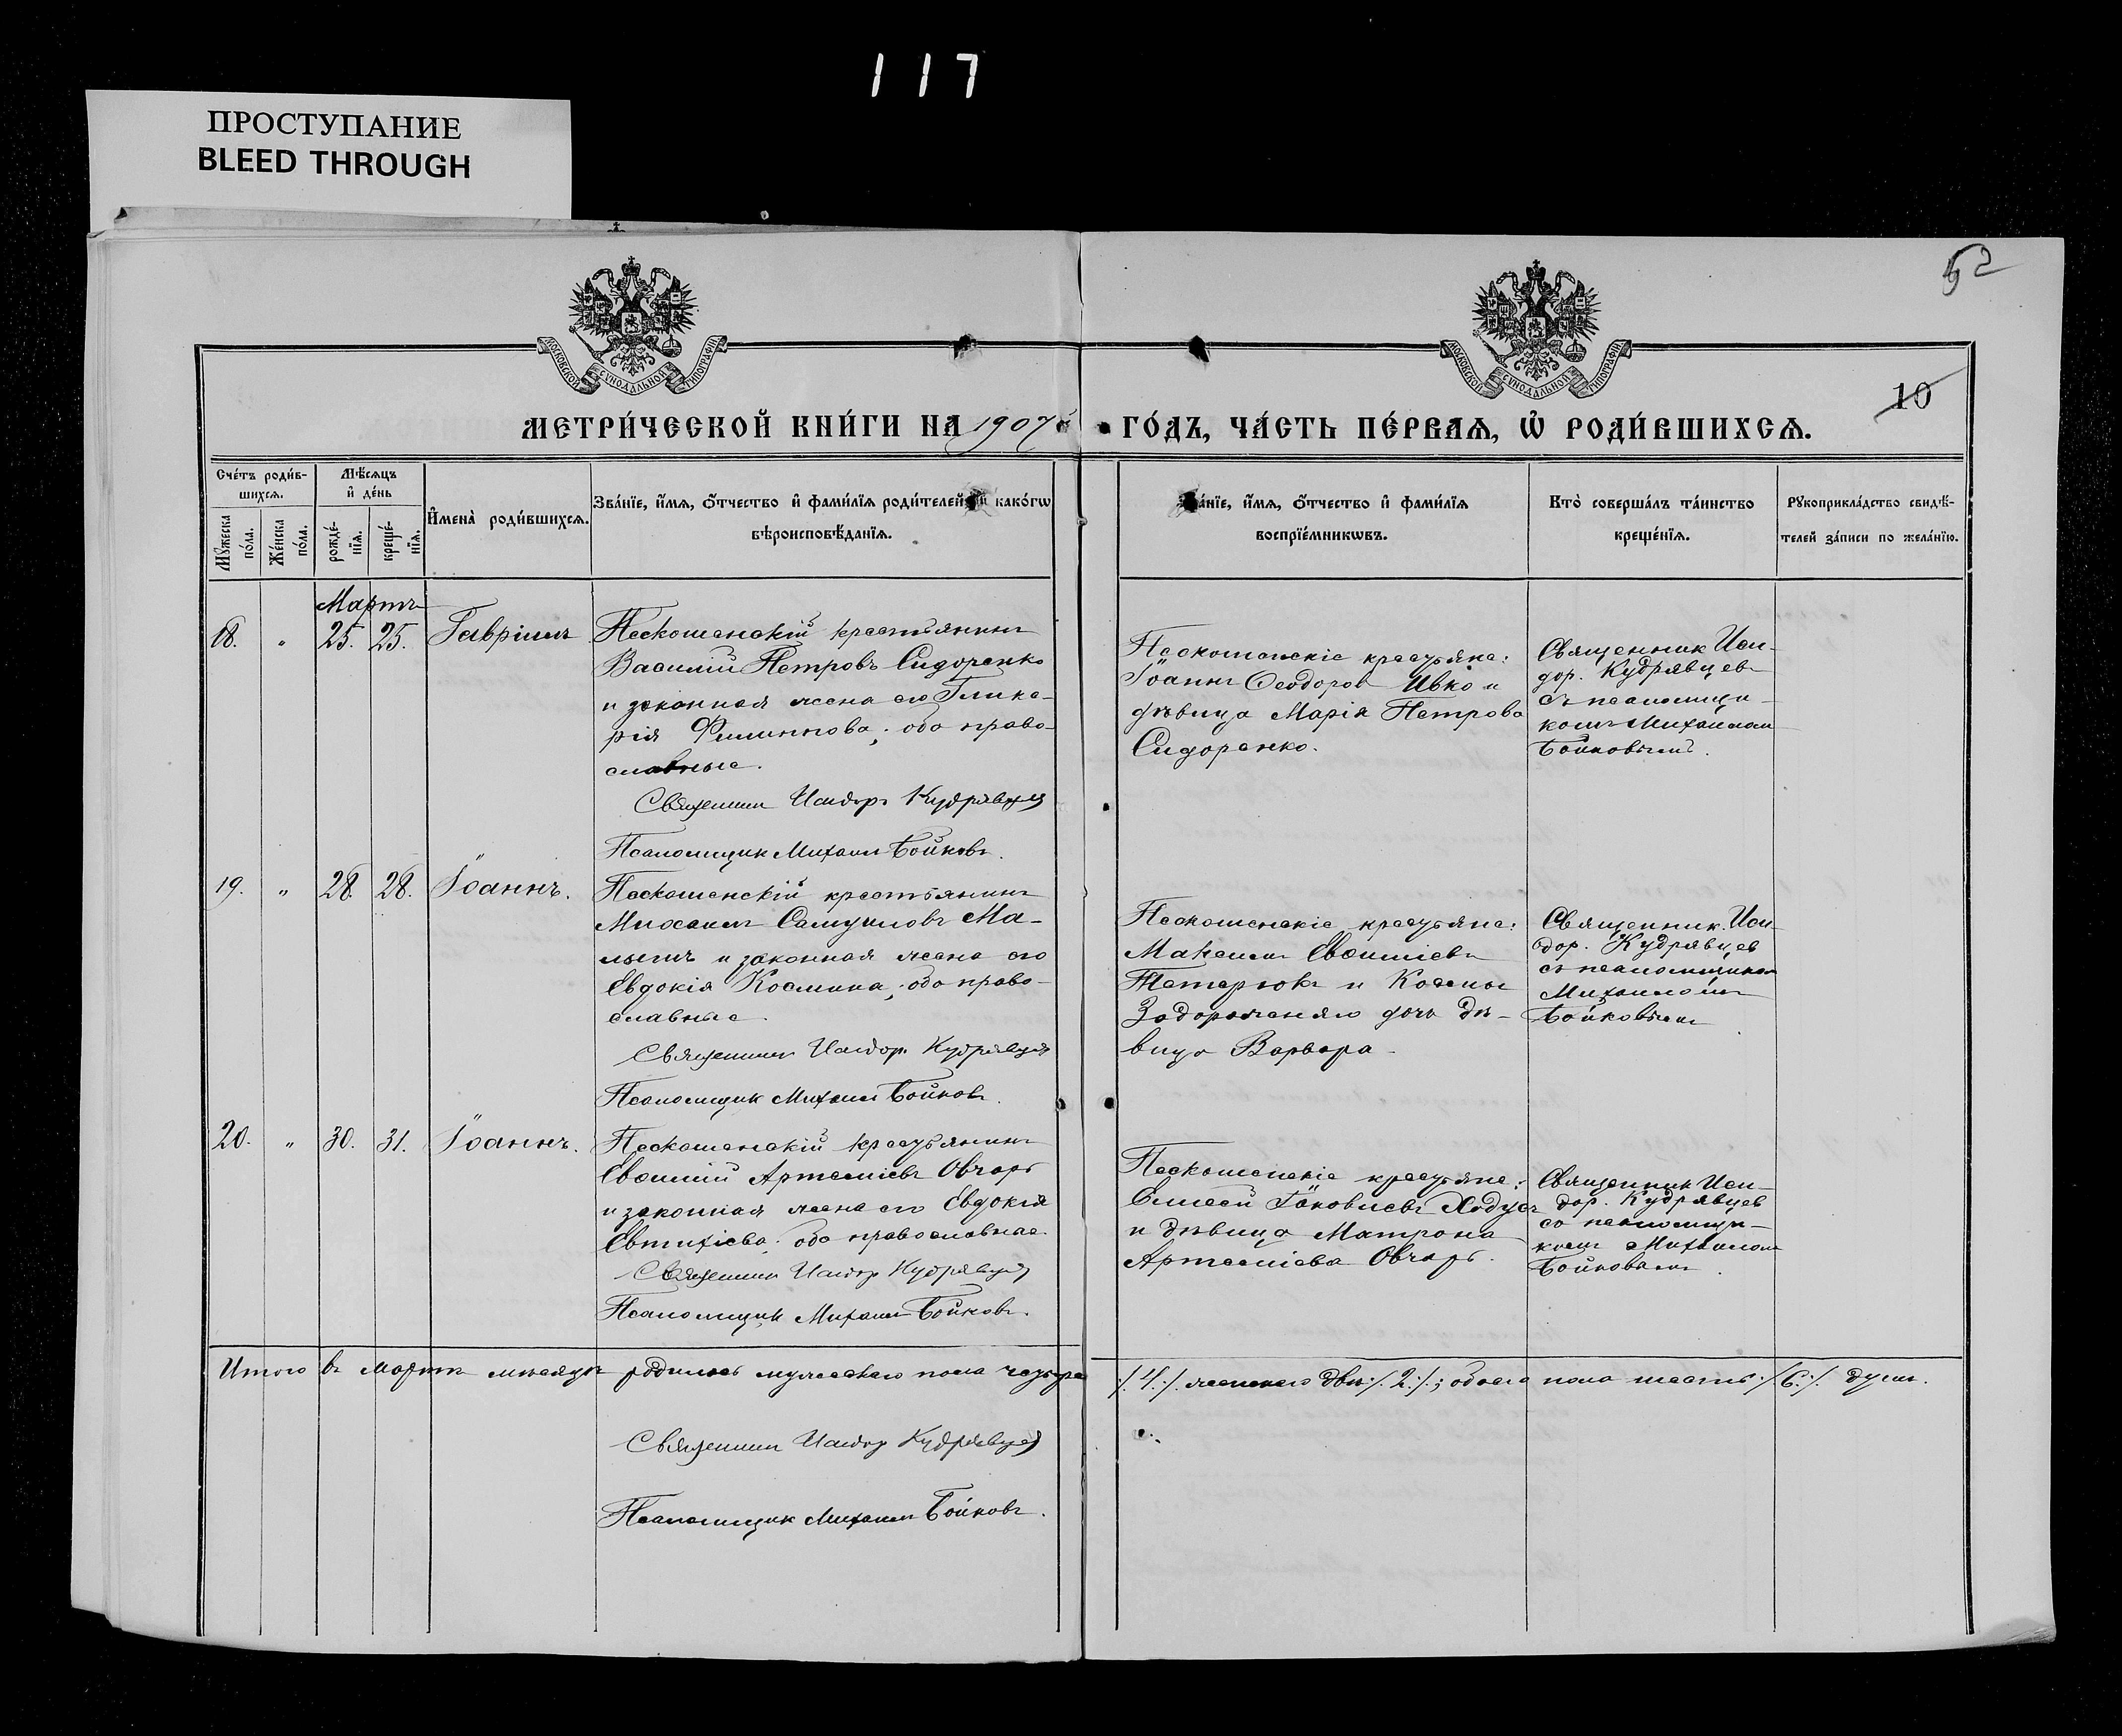 117
ПРОСТУПАНИЕ
BLEED THROUGH
52
МОСКОВСКОЙ СѴНОДАЛЬНОЙ ТИПОГРАФІИ
МОСКОВСКОЙ СѴНОДАЛЬНОЙ ТИПОГРАФІИ
10
МЕТРИ́ЧЕСКОЙ КНИ́ГИ НА 1907 ГО́ДЪ, ЧА́СТЬ ПЕ́РВАЯ, Ѡ҆ РОДИ́ВШИХСѦ.
Сче́тъ роди́в-
шихсѧ.
Мꙋ́жеска по́ла.
Же́нска по́ла.
Мѣ́сѧцъ
и҆ де́нь
рожде́-
нїѧ.
креще́-
нїѧ.
И҆мена̀ роди́вшихсѧ.
Зва́нїе, и҆́мѧ, ѻ҆́тчество и҆ фами́лїѧ роди́телей и҆ како́гѡ
вѣроисповѣ́данїѧ.
Зва́нїе, и҆́мѧ, ѻ҆́тчество и҆ фами́лїѧ
воспрїе́мникѡвъ.
Кто̀ соверша́лъ та́инство
креще́нїѧ.
Рꙋкоприкла́дство свидѣ́-
телей за́писи по жела́нїю.
Мартъ
18. " 25. 25. Гавріилъ
Пескошенскій крестьянинъ
Василій Петровъ Сидоренко
и законная жена его Глике-
рія Филиппова; оба право-
славные.
Священникъ Исидоръ Кудрявцев
Псаломщик Михаил Бойковъ.
Пескошенскіе крестьяне:
Іоаннъ Ѳеодоров Ивко и
дѣвица Марія Петрова
Сидоренко.
Священник Иси-
дор. Кудрявцевъ
съ псаломщи-
комъ Михаилом
Бойковымъ.
19. " 28. 28. Іоаннъ.
Пескошенскій крестьянинъ
Михаилъ Самуиловъ Ма-
лышъ и законная жена его
Евдокія Космина; оба право-
славные.
Священникъ Исидор. Кудрявцев
Псаломщик Михаил Бойковъ.
Пескошенскіе крестьяне:
Максимъ Евѳиміевъ
Тетерюкъ и Космы
Задорожняго дочь дѣ-
вица Варвара.
Священник. Иси-
дор. Кудрявцев
съ псаломщиком
Михаиломъ
Бойковымъ
20. " 30. 31. Іоаннъ.
Пескошенскій крестьянинъ
Евѳимій Артеміевъ Овчаръ
и законная жена его Евдокія
Евтихіева; оба православные.
Священникъ Исидор Кудрявцев
Псаломщик Михаил Бойковъ.
Пескошенскіе крестьяне:
Елисей Іаковлевъ Ходусъ
и дѣвица Матрона
Артеміева Овчаръ.
Священник Иси-
дор. Кудрявцев
со псаломщи-
комъ Михаилом
Бойковымъ.
Итого въ мартѣ мѣсяцѣ родилось мужескаго пола четыре /.4./. женскаго двѣ /.2./.; обоего пола шесть /.6./. душъ.
Священникъ Исидор Кудрявцев
Псаломщик Михаил Бойковъ.